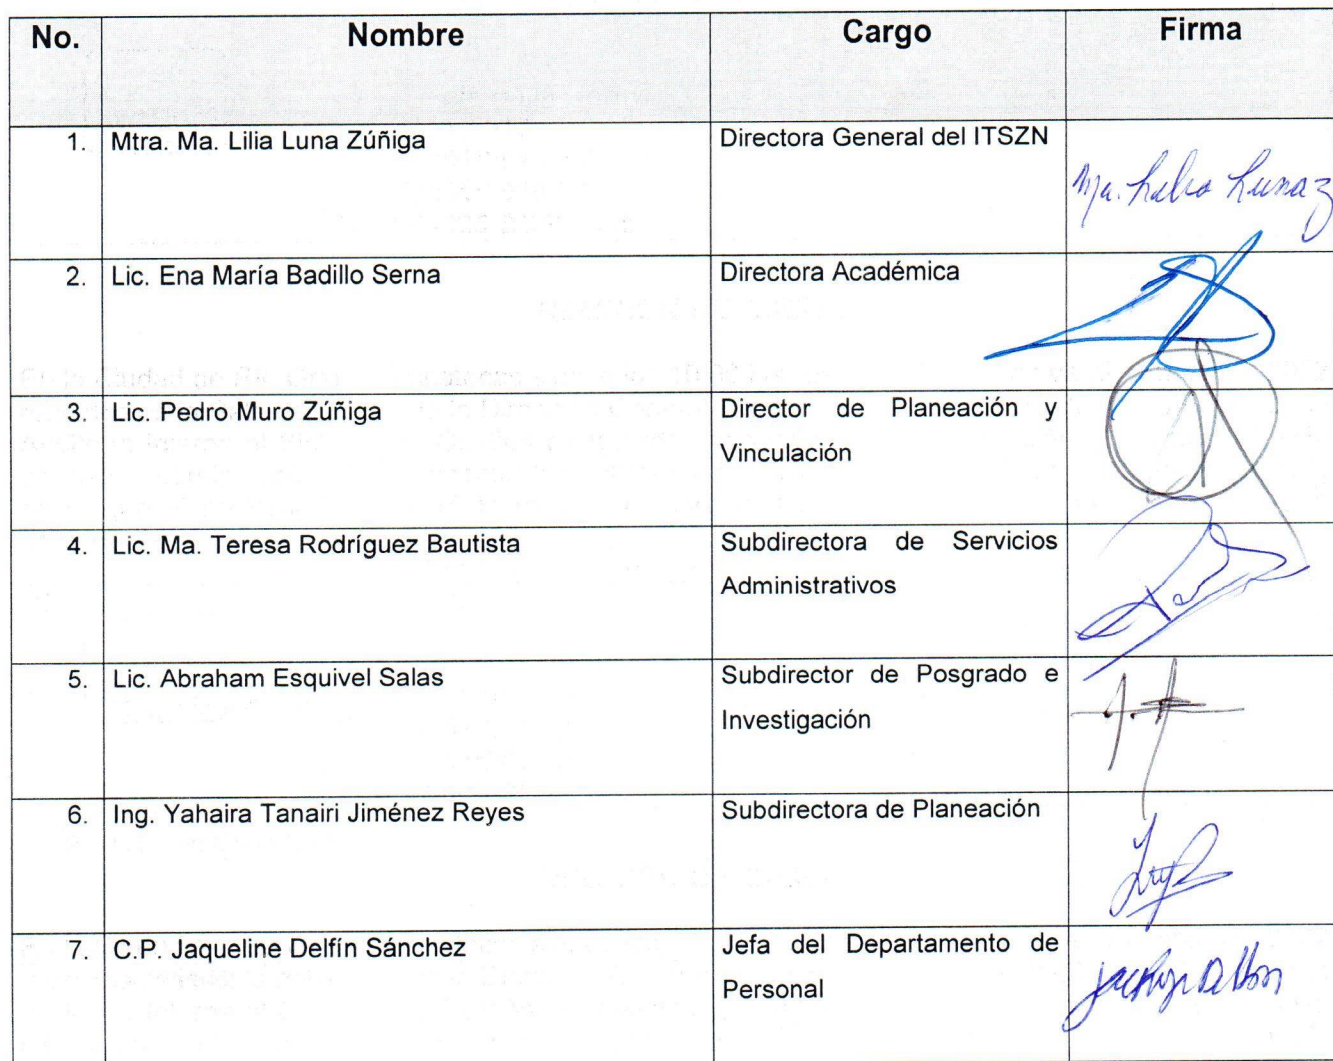 No. Nombre Cargo Firma
1. Mtra. Ma. Lilia Luna Zúñiga Directora General del ITSZN Ma. Lilia Luna Z
2. Lic. Ena María Badillo Serna Directora Académica
3. Lic. Pedro Muro Zúñiga Director de Planeación y
Vinculación
4. Lic. Ma. Teresa Rodríguez Bautista Subdirectora de Servicios
Administrativos
5. Lic. Abraham Esquivel Salas Subdirector de Posgrado e
Investigación
6. Ing. Yahaira Tanairi Jiménez Reyes Subdirectora de Planeación
7. C.P. Jaqueline Delfín Sánchez Jefa del Departamento de
Personal